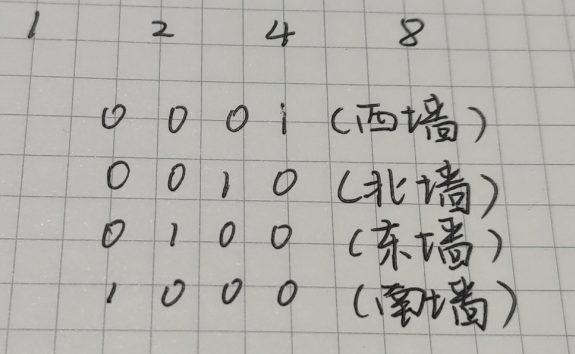 1 2 4 8
0 0 0 1 (西墙)
0 0 1 0 (北墙)
0 1 0 0 (东墙)
1 0 0 0 (南墙)